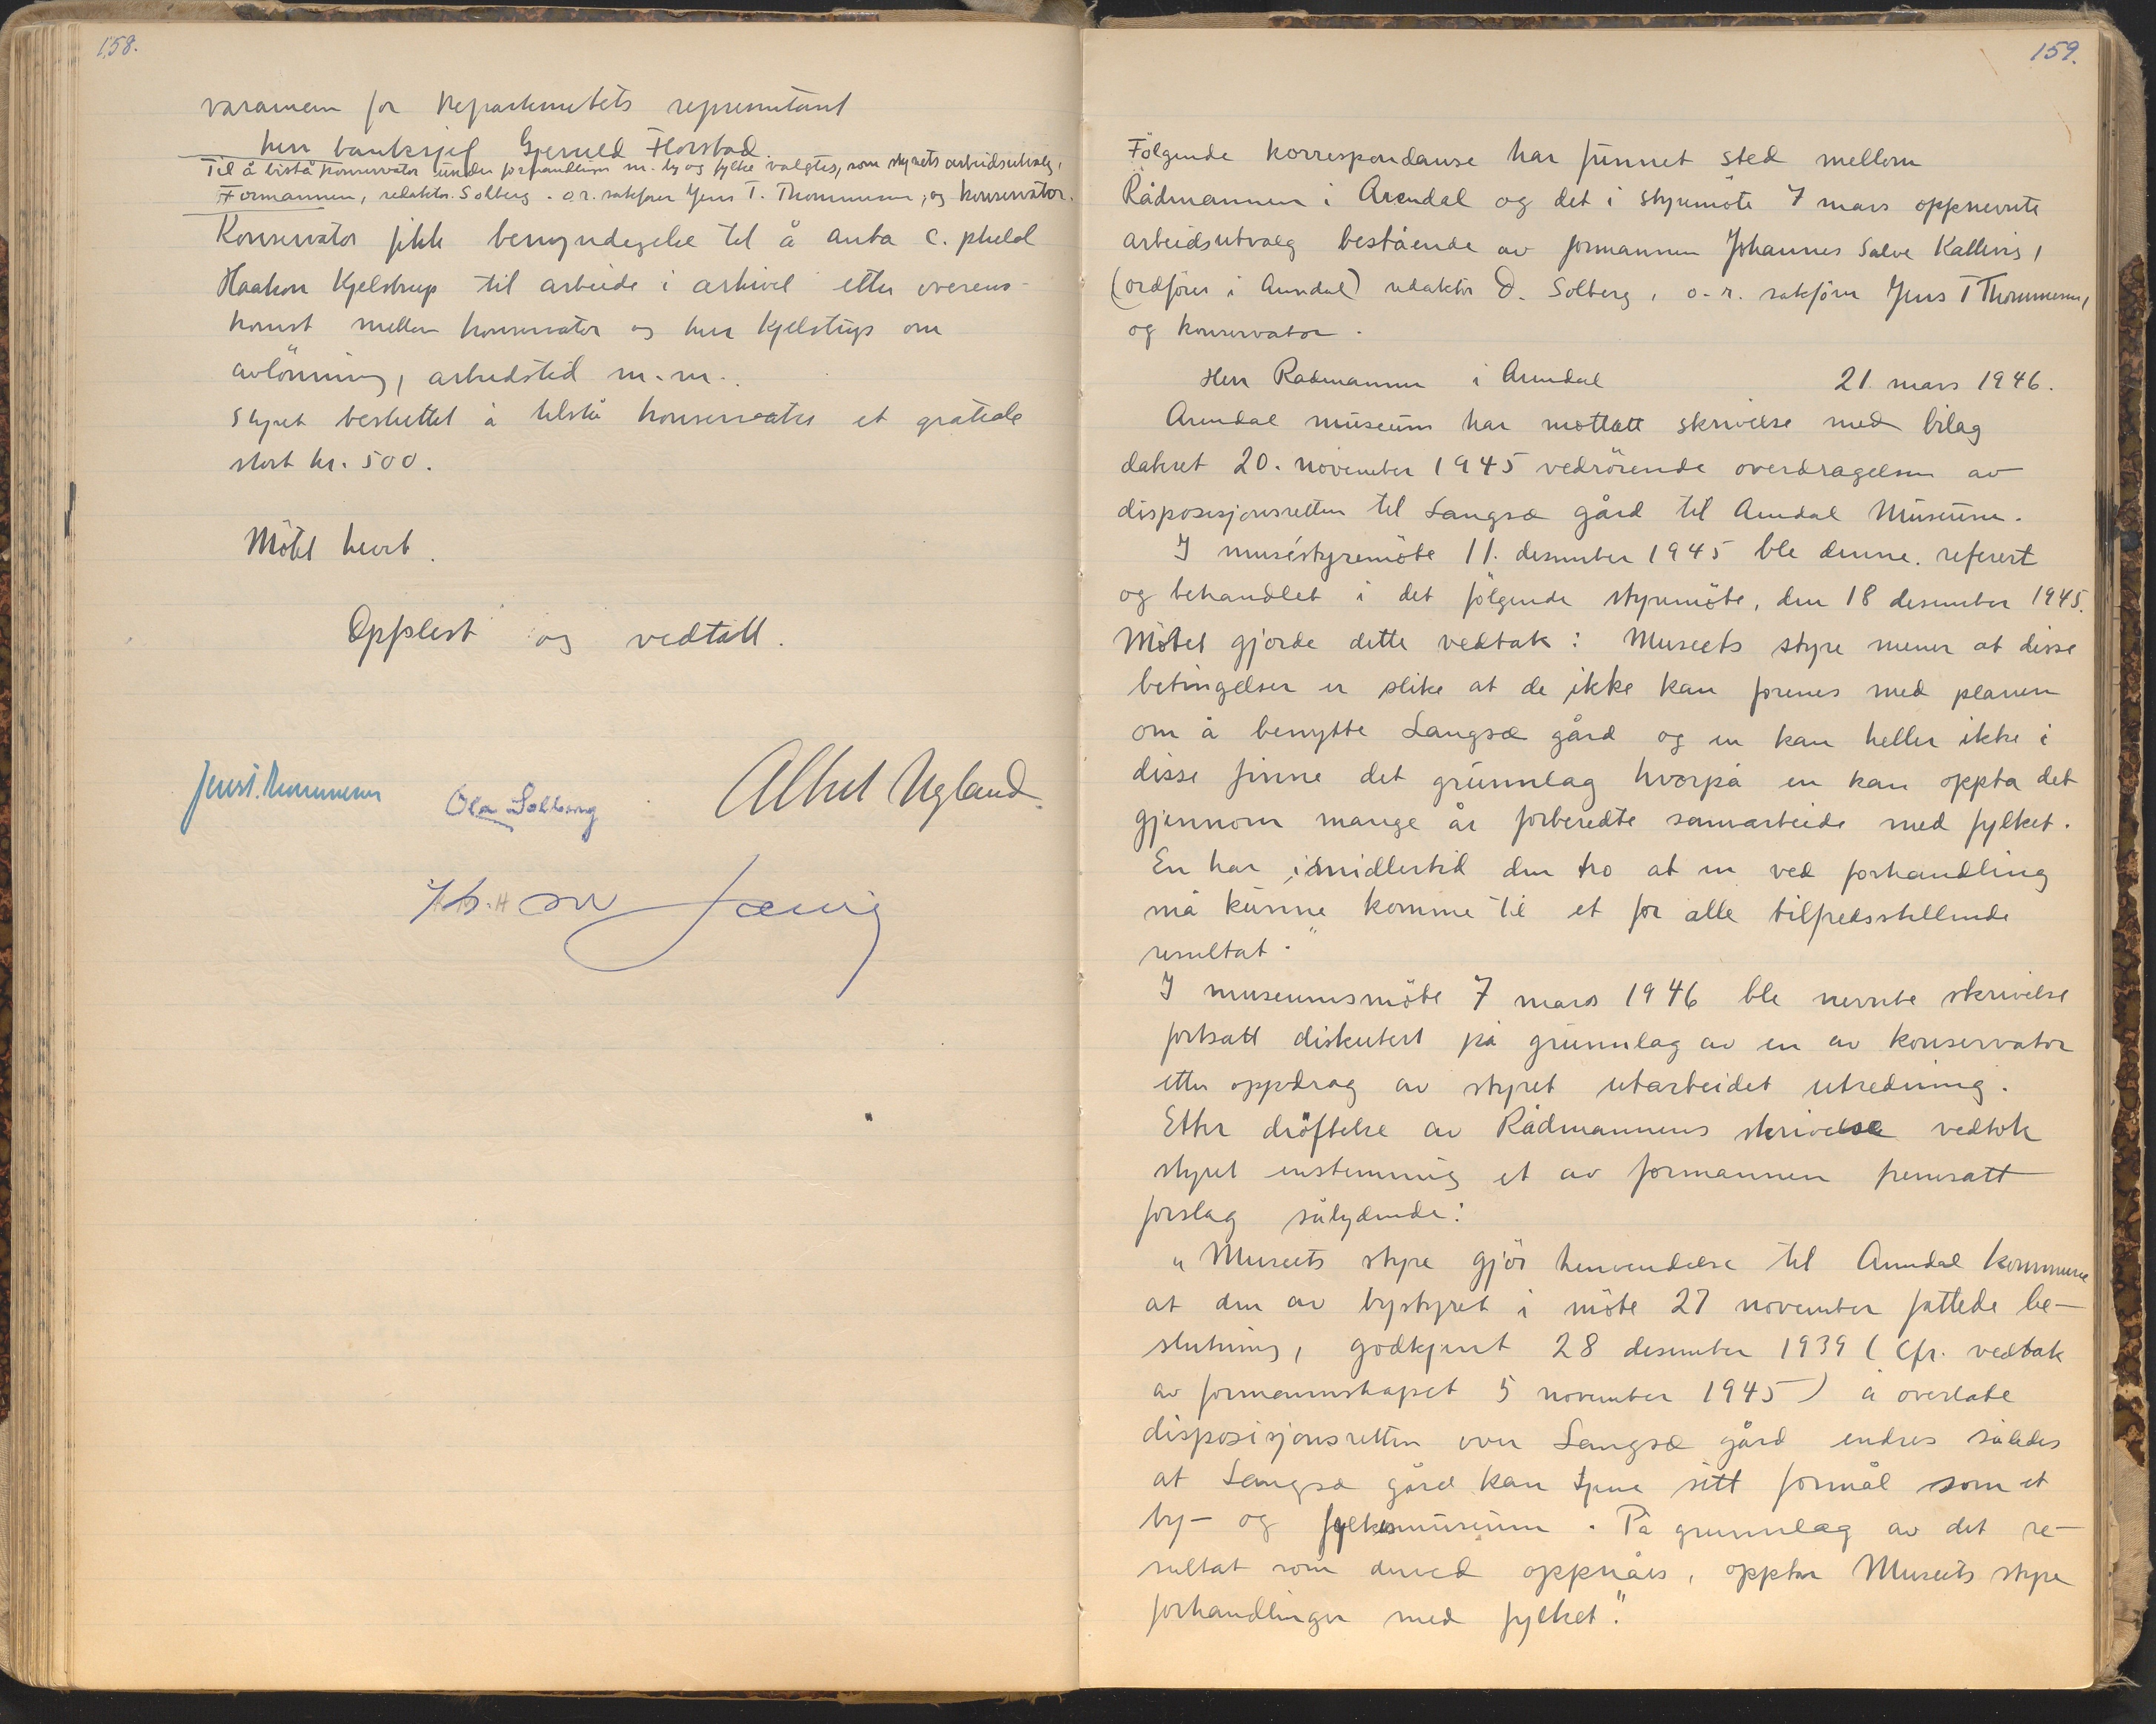 158.
varamenn for Departementets representant
herr banksjef Gjeruld Florstad.
Til å bistå konservator under forhandlinger m. by og fylke valgtes, som styrets arbeidsutvalg,
Formannen, redaktør Solberg. o.r. sakfører Jens T. Thommesen, og konservator.
Konservator fikk bemyndigelse til å anta c. philol
Haakon Kjelstrup til arbeide i arkivet etter overens-
komst mellem konservator og herr Kjelstrup om
avlönning, arbeidstid m.m.
Styret besluttet å tilstå konservator et gratiale
stort kr. 500.
Mötet hevet.
Opplest og vedtatt.
Jens T. Thommesen Ola Solberg Albert Ugland.
159.
Fölgende korrespondanse har funnet sted mellem
Rådmannen i Arendal og det i styremöte 7 mars oppnevnte
arbeidsutvalg bestående av formannen Johannes Salve Kallevig,
(ordförer i Arendal) redaktör O. Solberg, o-r. sakförer Jens T Thommesen,
og konservator.
Herr Rådmannen i Arendal 21. mars 1946.
Arendal museum har mottatt skrivelse med bilag
datert 20. november 1945 vedrörende overdragelsen av
disposisjonsretten til Langsæ gård til Arendal Museum.
I muséstyremöte 11. desember 1945 ble denne referert
og behandlet i det fölgende styremöte, den 18 desember 1945.
Mötet gjorde dette vedtak: Museets styre mener at disse
betingelser er slike at de ikke kan forenes med planen
om å benytte Langsæ gård og en kan heller ikke i
disse finne det grunnlag hvorpå en kan oppta det
gjennom mange år forberedte samarbeide med fylket.
En har imidlertid den tro at en ved forhandling
må kunne komme til et for alle tilfredsstillende
resultat."
I museumsmöte 7 mars 1946 ble nevnte skrivelse
fortsatt diskutert på grunnlag av en av konservator
etter oppdrag av styret utarbeidet utredning.
Etter dröftelse av Rådmannens skrivelse vedtok
styret enstemmig et av formannen fremsatt
forslag sålydende:
"Museets styre gjör henvendelse til Arendal kommune
at den av bystyret i möte 27 november fattede be-
slutning, godkjent 28 desember 1939 (cfr. vedtak
av formannskapet 5 november 1945) å overlate
disposisjonsretten over Langsæ gård endres således
at Langsæ gård kan tjene sitt formål som et
by- og fylkesmuseum. På grunnlag av det re-
sultat som derved oppnåes, opptar Museets styre
forhandlinger med fylket."